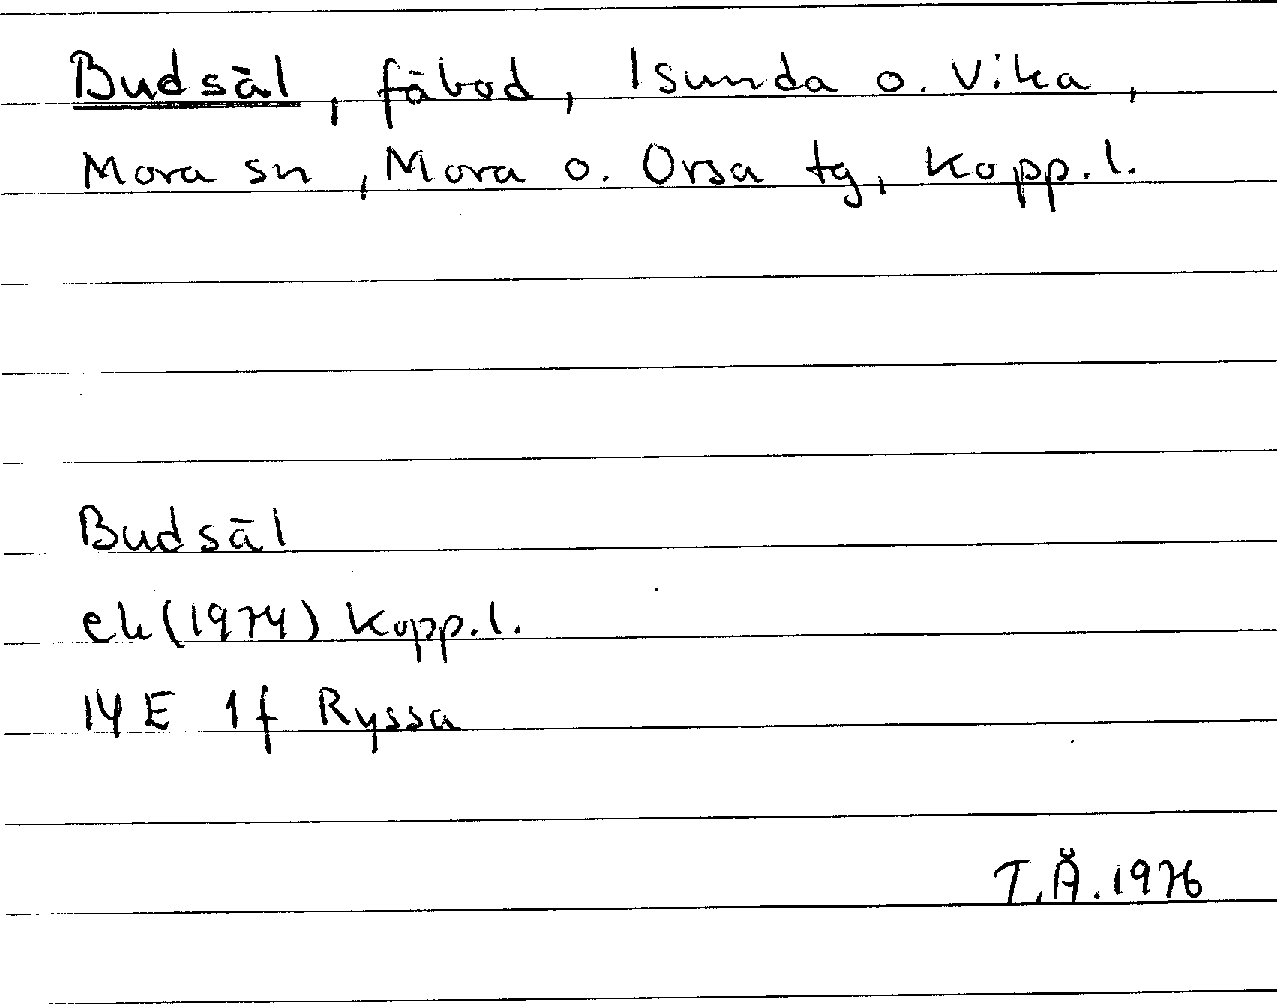 Budsäl, fäbod, Isunda o. Vika,
Mora sn, Mora o. Orsa tg, Kopp.l.
Budsäl
ek (1974) Kopp.l.
14 E 1f Ryssa
T.Å. 1976